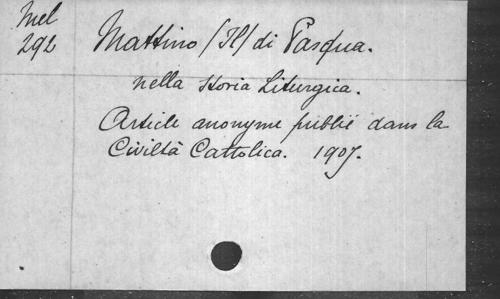 Mel
292
Mattino (Il) di Pasqua.
nella storia Liturgica.
Article anonyme publié dans la
Civiltà Cattolica. 1907.